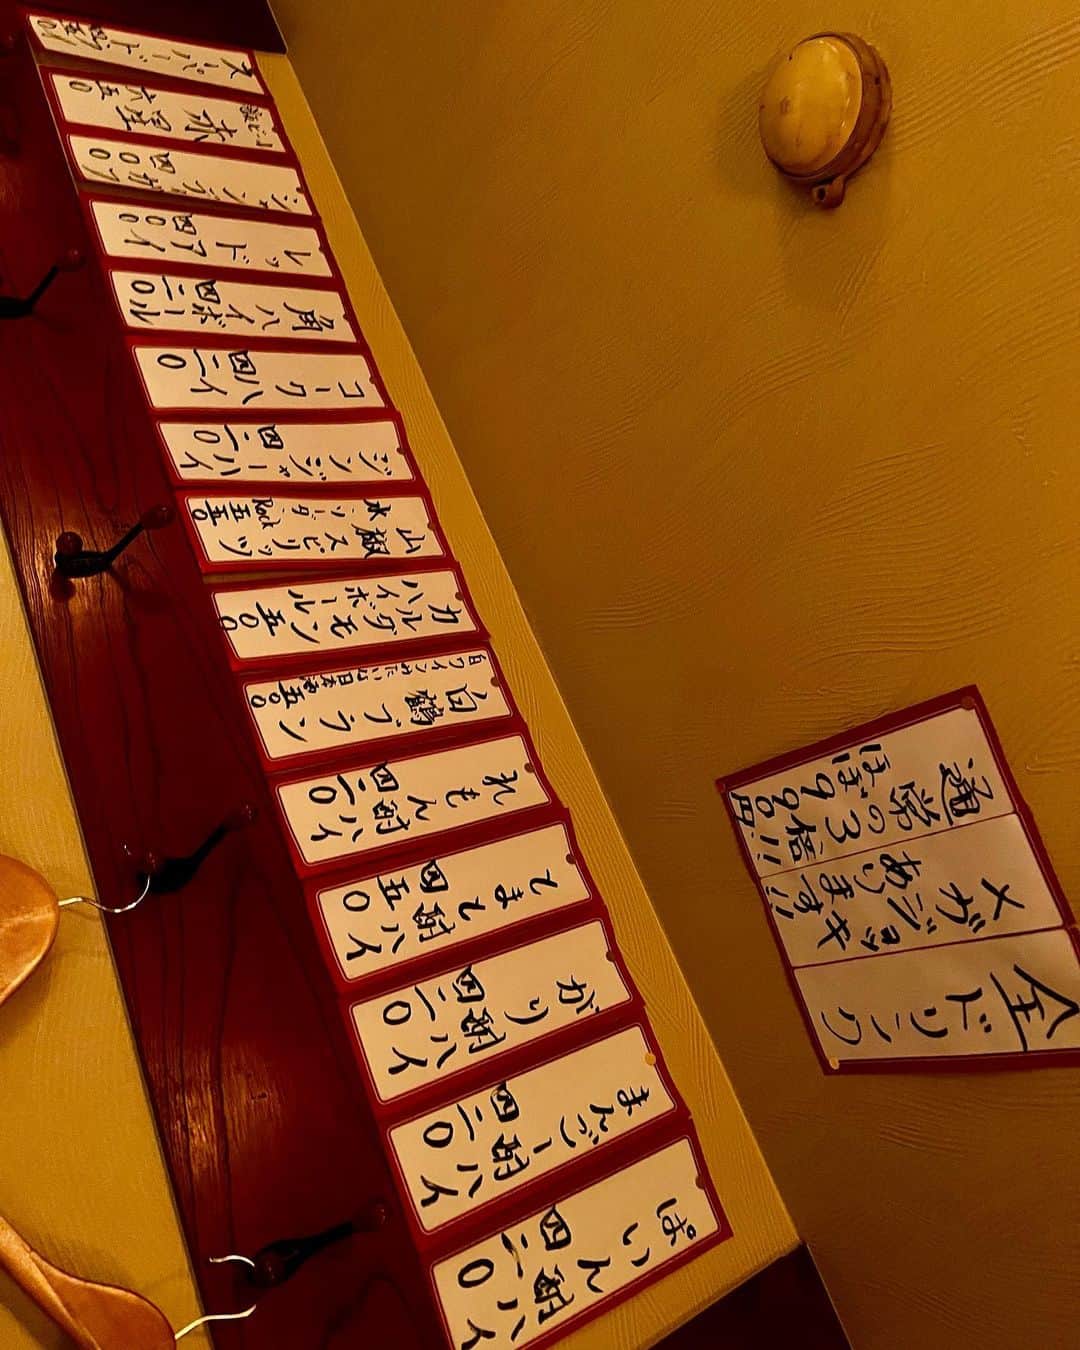 全ドリンク
メガジョッキ
あります!!
通常の3倍!!
ほぼ900円
ぱいん酎ハイ
四二〇
まんごー酎ハイ
四二〇
がり酎ハイ
四二〇
とまと酎ハイ
四五〇
れもん酎ハイ
四二〇
白鶴ブラン
白ワインみたいな日本酒
五〇〇
カルダモン
ハイボール
五〇〇
山椒スピリッツ
水・ソーダ・Rock
五五〇
ジンジャーハイ
四二〇
コークハイ
四二〇
角ハイボール
四二〇
レッドアイ
四〇〇
シャンディガフ
四〇〇
瓶ビール
赤星
六五〇
スーパードライ